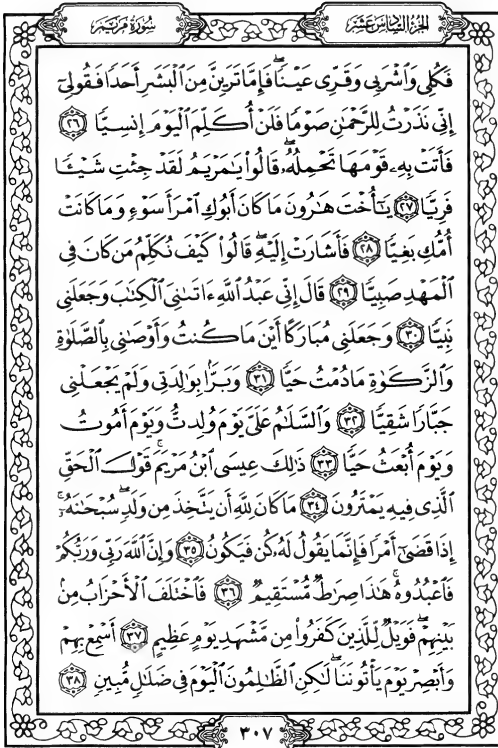 الجزء السادس عشر
سورة مريم
فَكُلِي وَاشْرَبِي وَقَرِّي عَيْنًا ۖ فَإِمَّا تَرَيِنَّ مِنَ الْبَشَرِ أَحَدًا فَقُولِي
إِنِّي نَذَرْتُ لِلرَّحْمَٰنِ صَوْمًا فَلَنْ أُكَلِّمَ الْيَوْمَ إِنسِيًّا ٢٦
فَأَتَتْ بِهِ قَوْمَهَا تَحْمِلُهُ ۖ قَالُوا يَا مَرْيَمُ لَقَدْ جِئْتِ شَيْئًا
فَرِيًّا ٢٧ يَا أُخْتَ هَارُونَ مَا كَانَ أَبُوكِ امْرَأَ سَوْءٍ وَمَا كَانَتْ
أُمُّكِ بَغِيًّا ٢٨ فَأَشَارَتْ إِلَيْهِ ۖ قَالُوا كَيْفَ نُكَلِّمُ مَن كَانَ فِي
الْمَهْدِ صَبِيًّا ٢٩ قَالَ إِنِّي عَبْدُ اللَّهِ آتَانِيَ الْكِتَابَ وَجَعَلَنِي
نَبِيًّا ٣٠ وَجَعَلَنِي مُبَارَكًا أَيْنَ مَا كُنتُ وَأَوْصَانِي بِالصَّلَاةِ
وَالزَّكَاةِ مَا دُمْتُ حَيًّا ٣١ وَبَرًّا بِوَالِدَتِي وَلَمْ يَجْعَلْنِي
جَبَّارًا شَقِيًّا ٣٢ وَالسَّلَامُ عَلَيَّ يَوْمَ وُلِدتُّ وَيَوْمَ أَمُوتُ
وَيَوْمَ أُبْعَثُ حَيًّا ٣٣ ذَٰلِكَ عِيسَى ابْنُ مَرْيَمَ ۚ قَوْلَ الْحَقِّ
الَّذِي فِيهِ يَمْتَرُونَ ٣٤ مَا كَانَ لِلَّهِ أَن يَتَّخِذَ مِن وَلَدٍ ۖ سُبْحَانَهُ ۚ
إِذَا قَضَىٰ أَمْرًا فَإِنَّمَا يَقُولُ لَهُ كُن فَيَكُونُ ٣٥ وَإِنَّ اللَّهَ رَبِّي وَرَبُّكُمْ
فَاعْبُدُوهُ ۚ هَٰذَا صِرَاطٌ مُّسْتَقِيمٌ ٣٦ فَاخْتَلَفَ الْأَحْزَابُ مِن
بَيْنِهِمْ ۖ فَوَيْلٌ لِّلَّذِينَ كَفَرُوا مِن مَّشْهَدِ يَوْمٍ عَظِيمٍ ٣٧ أَسْمِعْ بِهِمْ
وَأَبْصِرْ يَوْمَ يَأْتُونَنَا ۖ لَٰكِنِ الظَّالِمُونَ الْيَوْمَ فِي ضَلَالٍ مُّبِينٍ ٣٨
٣٠٧